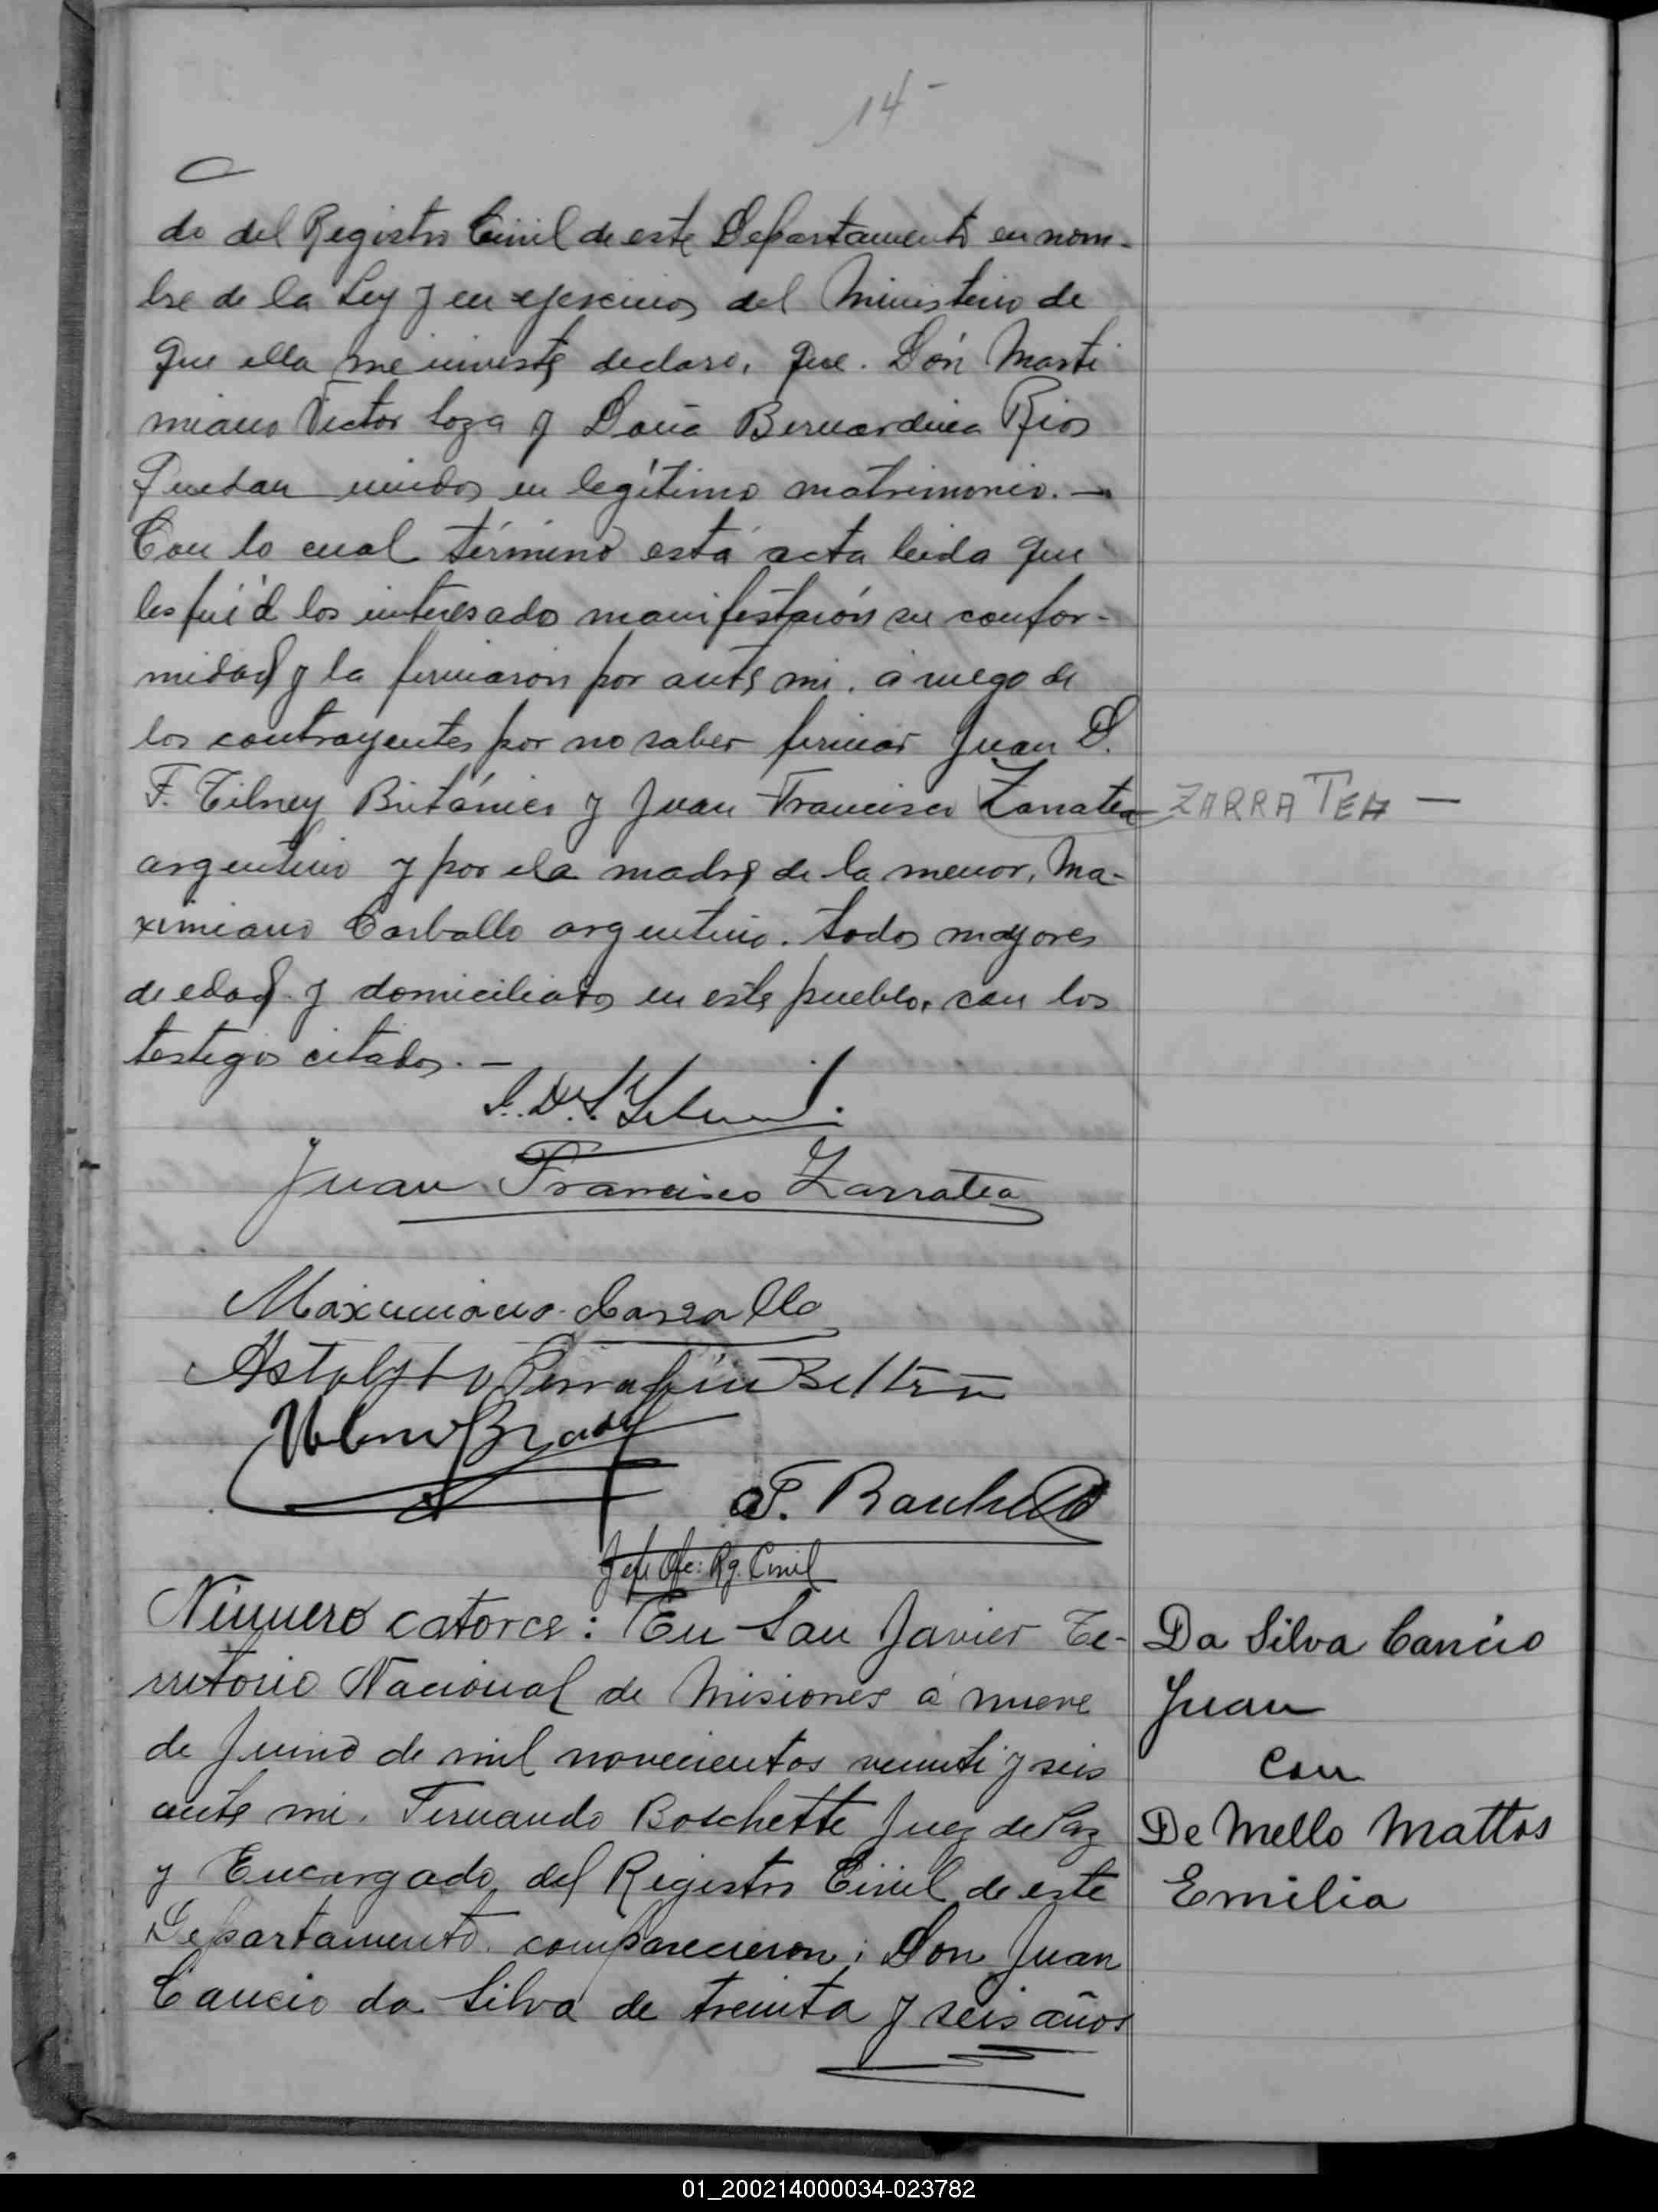 14-
do del Registro Civil de este Departamento en nom-
bre de la Ley y en ejercicios del Ministerio de
que ella me inviste declaro, que. Dón Marti
miano Victor Loza y Doña Bernardina Rios
Quedan unidos en legítimo matrimonio. —
Con lo cual término está acta leida que
les fué á los interesado manifestarón su confor-
midad y la firmaron por ante mi. á ruego de
los contrayentes por no saber firmar Juan D.
F. Tilney Británico y Juan Francisco Zarratea
ZARRATEA —
argentino y por ela madre de la menor, Ma-
ximiano Carballo argentino. todos mayores
de edad y domiciliados en este pueblo, con los
testigos citados. —
Juan Francisco Zarratea
Maximiano Carballo
Beltrán
Jefe Ofc: Rg. Civil
Número catorce: En San Javier Te-
rritorio Nacional de Misiones á nueve
de Junio de mil novecientos veinti y seis
ante mi. Fernando Boschette Juez de Paz
y Encargado del Registro Civil de este
Departamento. comparecieron: Don Juan
Cancio da Silva de treinta y seis años
Da Silva Cancio
Juan
con
De Mello Mattos
Emilia
01_200214000034-023782